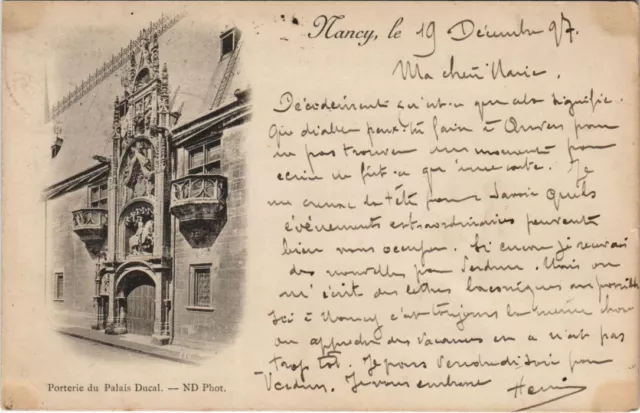 Nancy, le 19 Décembre 97.
Ma chère Marie.
Décidément qu'est-ce que cela signifie.
Que diable peux-tu faire à Anvers pour
ne pas trouver un moment pour
écrire ne fût-ce qu'une carte. Je
me creuse la tête pour savoir quels
évènements extraordinaires peuvent
bien vous occuper. Si encore je recevais
des nouvelles par Verdun. Mais on
m'écrit des lettres laconiques au possible
Ici à Nancy c'est toujours la même chose
on approche des vacances ce n'est pas
trop tôt. Je pars Vendredi soir pour
Verdun. Je vous embrasse
Henri
Porterie du Palais Ducal. — ND Phot.